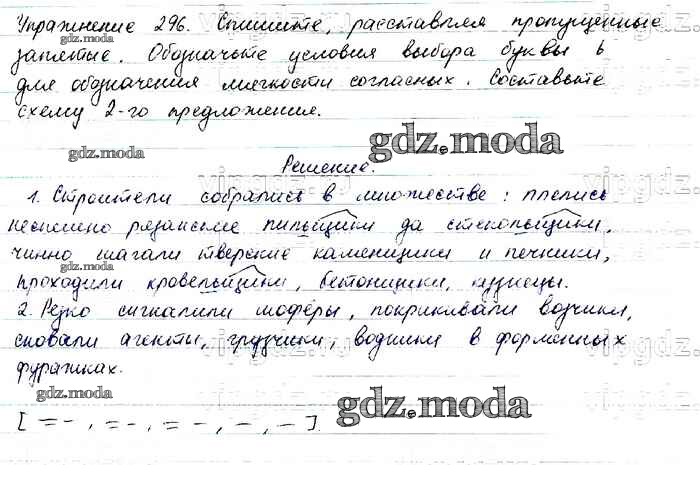 Упражнение 296. Спишите, расставляя пропущенные
запятые. Обозначьте условия выбора буквы ь
gdz.moda
для обозначения мягкости согласных. Составьте
схему 2-го предложения.
gdz.moda
gdz.moda
Решение.
1. Строители собрались в множестве: плелись
неспешно рязанские пильщики да стекольщики,
чинно шагали тверские каменщики и печники,
gdz.moda
проходили кровельщики, бетонщики, кузнецы.
2. Резко сигналили шофёры, покрикивали возчики,
сновали агенты, грузчики, водники в форменных
gdz.moda
фуражках.
[ = – , = – , = – , – , – ].
gdz.moda
vipgdz.ru